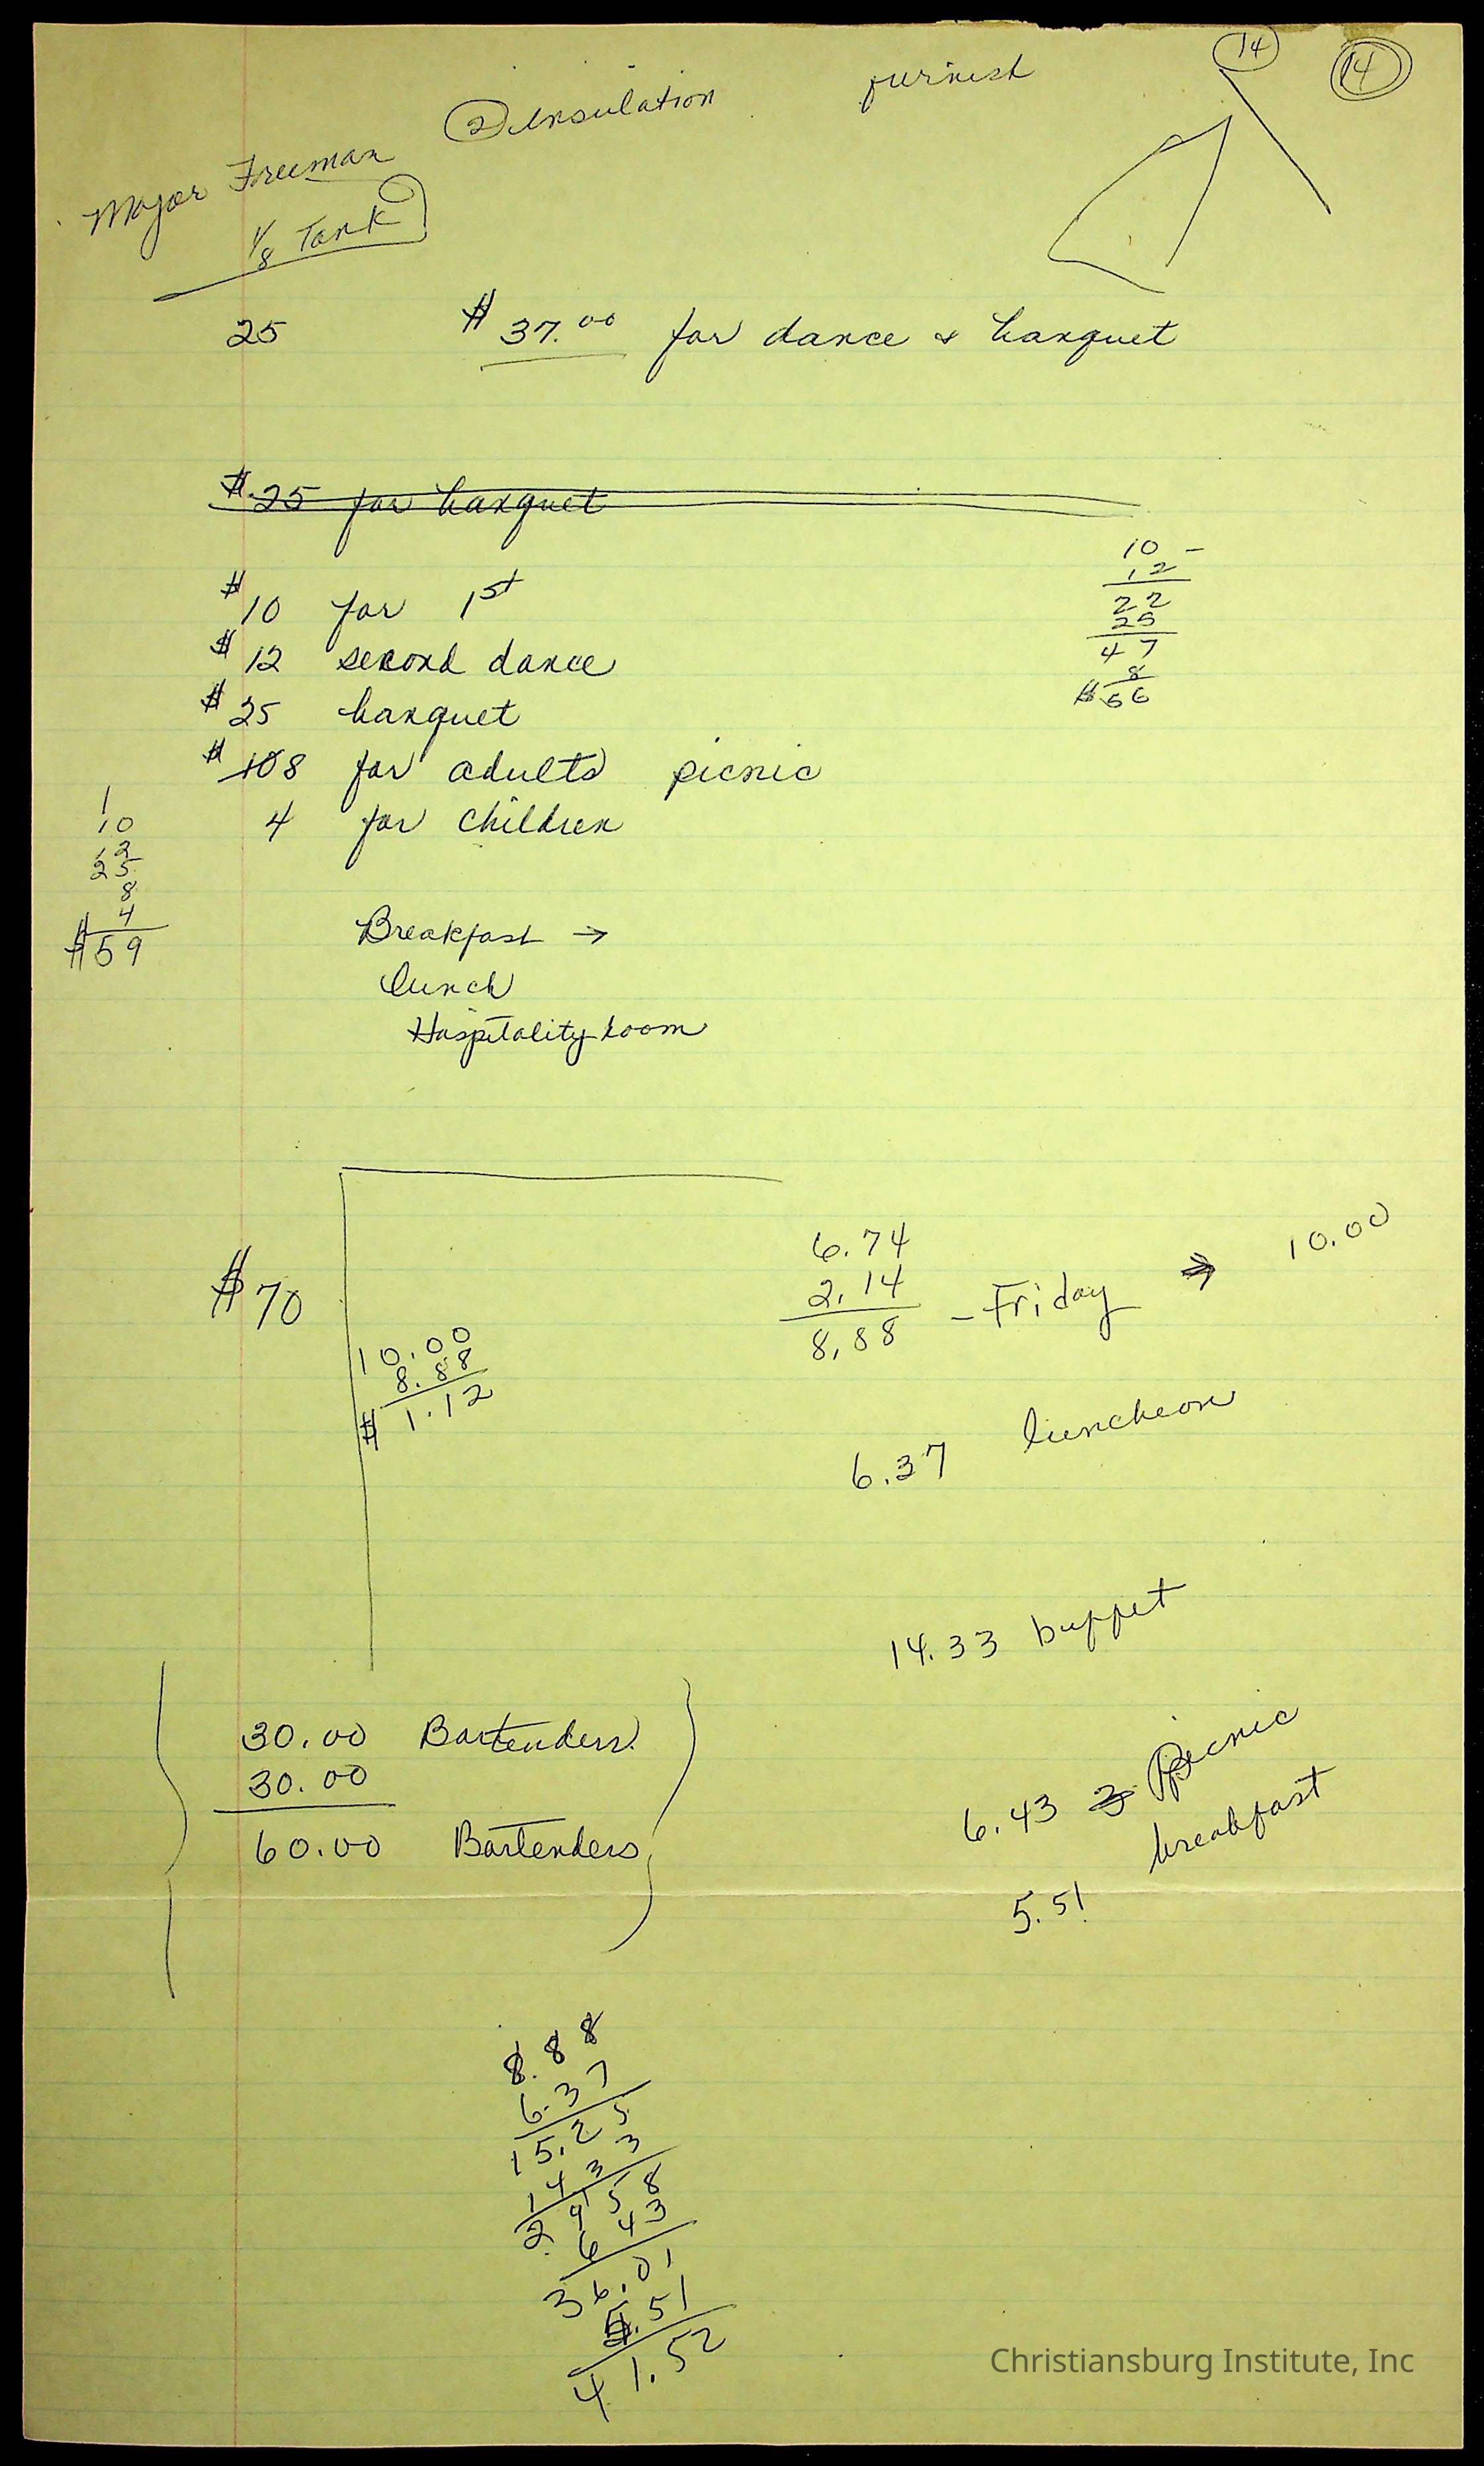 14 14
② Insulation furnish
Major Freeman
1/8 Tank
25 $37.00 for dance & banquet
$25 for banquet
$10 for 1st
$12 second dance
$25 banquet
$108 for adults picnic
4 for children
10 -
12
22
25
47
8
$56
1
10
12
25
8
4
$59
Breakfast →
lunch
Hospitality room
$70
10.00
8.88
$1.12
6.74
2.14
8.88 - Friday → 10.00
6.37 luncheon
14.33 buffet
6.43 Picnic
5.51 breakfast
30.00 Bartenders
30.00
60.00 Bartenders
8.88
6.37
15.25
14 33
29 58
6 43
36.01
5.51
41.52
Christiansburg Institute, Inc